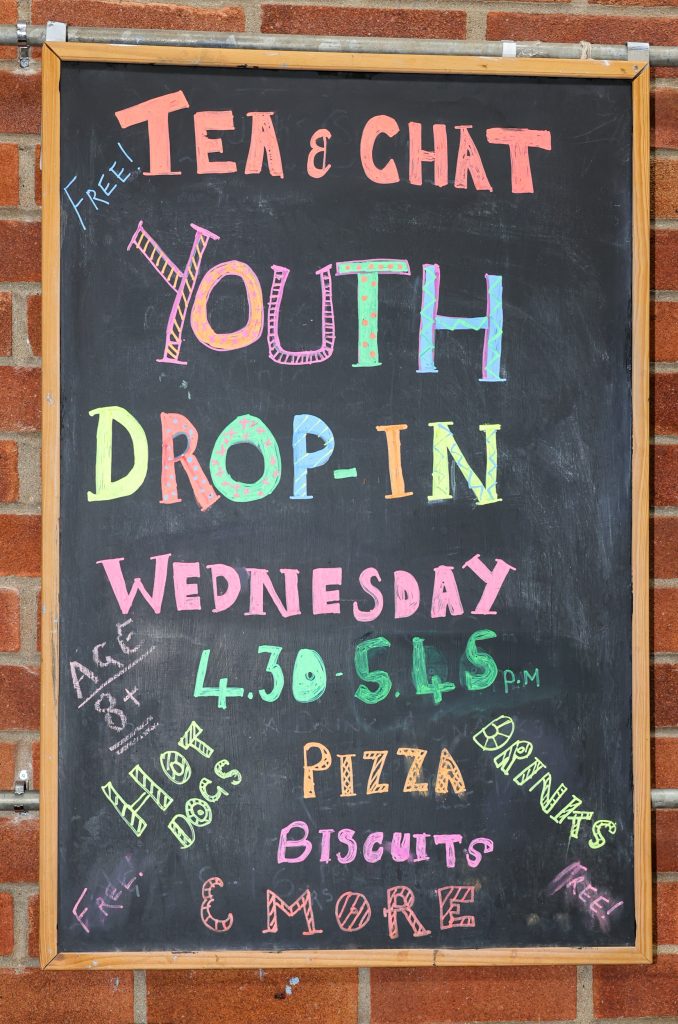 TEA & CHAT
FREE!
YOUTH
DROP-IN
WEDNESDAY
4.30-5.45 P.M
AGE
8+
HOT
DOGS
PIZZA
DRINKS
BISCUITS
& MORE
FREE!
FREE!